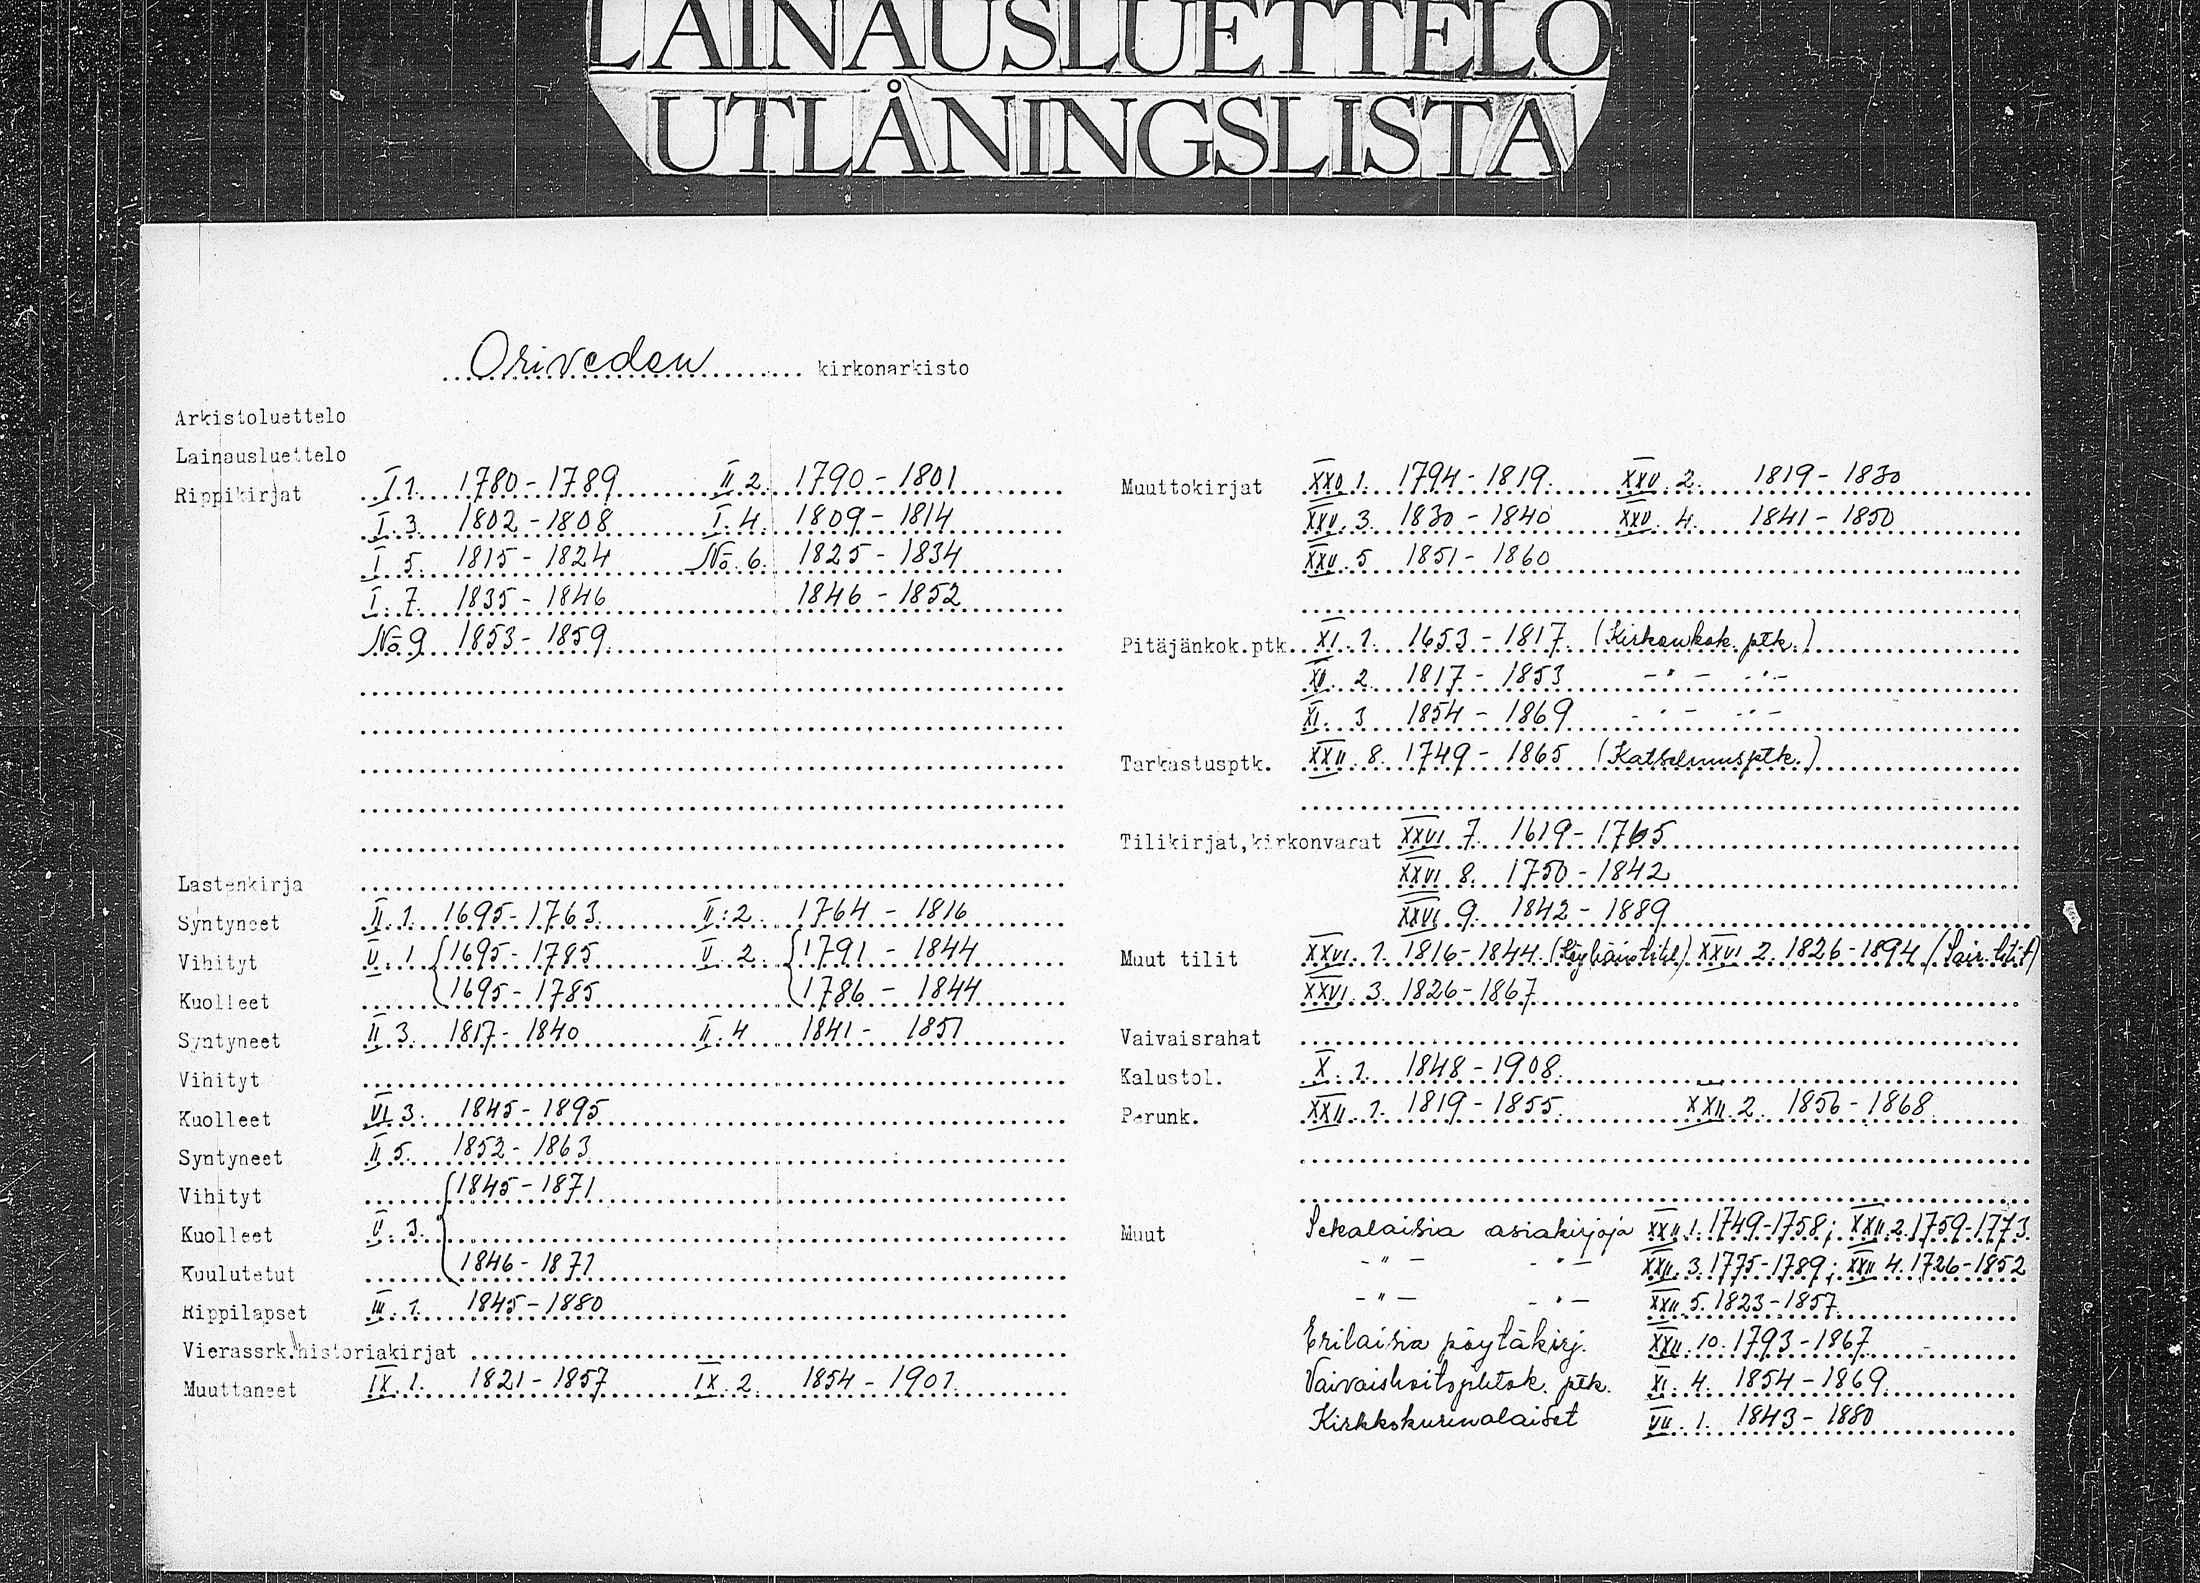 LAINAUSLUETTELO
UTLÅNINGSLISTA
Oriveden kirkonarkisto
Arkistoluettelo
Lainausluettelo
Rippikirjat I 1. 1780-1789 II 2. 1790-1801
I. 3. 1802-1808 I. 4. 1809-1814
I 5. 1815-1824 No. 6. 1825-1834
I. 7. 1835-1846 1846-1852
No 9 1853-1859
Lastenkirja
Syntyneet II 1. 1695-1763 II:2. 1764-1816
Vihityt V. 1 1695-1785 V. 2. 1791-1844
Kuolleet 1695-1785 1786-1844
Syntyneet II 3. 1817-1840 II. 4 1841-1851
Vihityt
Kuolleet VI 3. 1845-1895
Syntyneet II 5. 1852-1863
Vihityt 1845-1871
Kuolleet V. 3.
Kuulutetut 1846-1871
Rippilapset III. 1. 1845-1880
Vierassrk.historiakirjat
Muuttaneet IX. 1. 1821-1857 IX. 2. 1854-1901
Muuttokirjat XXV 1. 1794-1819. XXV. 2. 1819-1830
XXV. 3. 1830-1840 XXV. 4. 1841-1850
XXV. 5 1851-1860
Pitäjänkok.ptk. XI. 1. 1653-1817 (Kirkonkok. ptk.)
XI. 2. 1817-1853 -"- -"-
XI. 3 1854-1869 -"- -"-
Tarkastusptk. XXII. 8. 1749-1865 (Katselmusptk.)
Tilikirjat,kirkonvarat XXVI 7. 1619-1765
XXVI. 8. 1750-1842
XXVI. 9. 1842-1889
Muut tilit XXVI. 1. 1816-1844. XXVI 2. 1826-1894
XXVI. 3. 1826-1867
Vaivaisrahat
Kalustol. X. 1. 1848-1908.
Perunk. XXII. 1. 1819-1855. XXII. 2. 1856-1868
Muut Sekalaisia asiakirjoja XXII. 1. 1749-1758; XXII. 2. 1759-1773.
-"- -"- XXII. 3. 1775-1789; XXII 4. 1726-1852
-"- -"- XXII. 5. 1823-1857
Erilaisia pöytäkirj. XXII. 10. 1793-1867
ptk. XI. 4. 1854-1869
Kirkkokurinalaiset VII. 1. 1843-1880